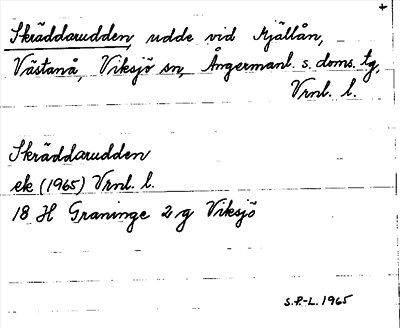 +
Skräddarudden, udde vid Mjällån,
Västanå, Viksjö sn, Ångermanl. s. doms. tg,
Vrnl. l.
Skräddarudden
ek (1965) Vrnl. l.
18 H Graninge 2 g Viksjö
S.P.-L. 1965